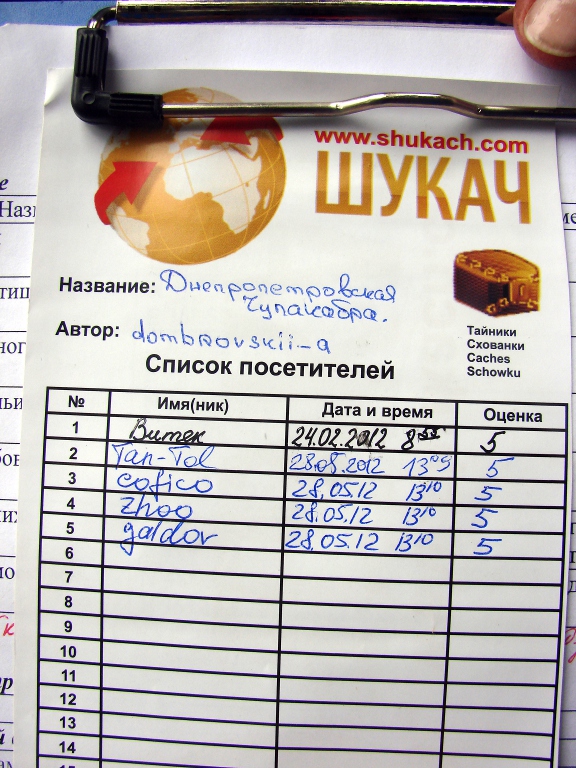 www.shukach.com
ШУКАЧ
Название: Днепропетровская
Чупакабра.
Автор: dombrovskii-a
Тайники
Схованки
Caches
Schowku
Список посетителей
№ Имя(ник) Дата и время Оценка
1 Витек 24.02.2012 8⁵⁵ 5
2 Tan-Tol 28.05.2012 13⁰⁹ 5
3 cofico 28.05.12 13¹⁰ 5
4 zhoo 28.05.12 13¹⁰ 5
5 galdor 28.05.12 13¹⁰ 5
6
7
8
9
10
11
12
13
14